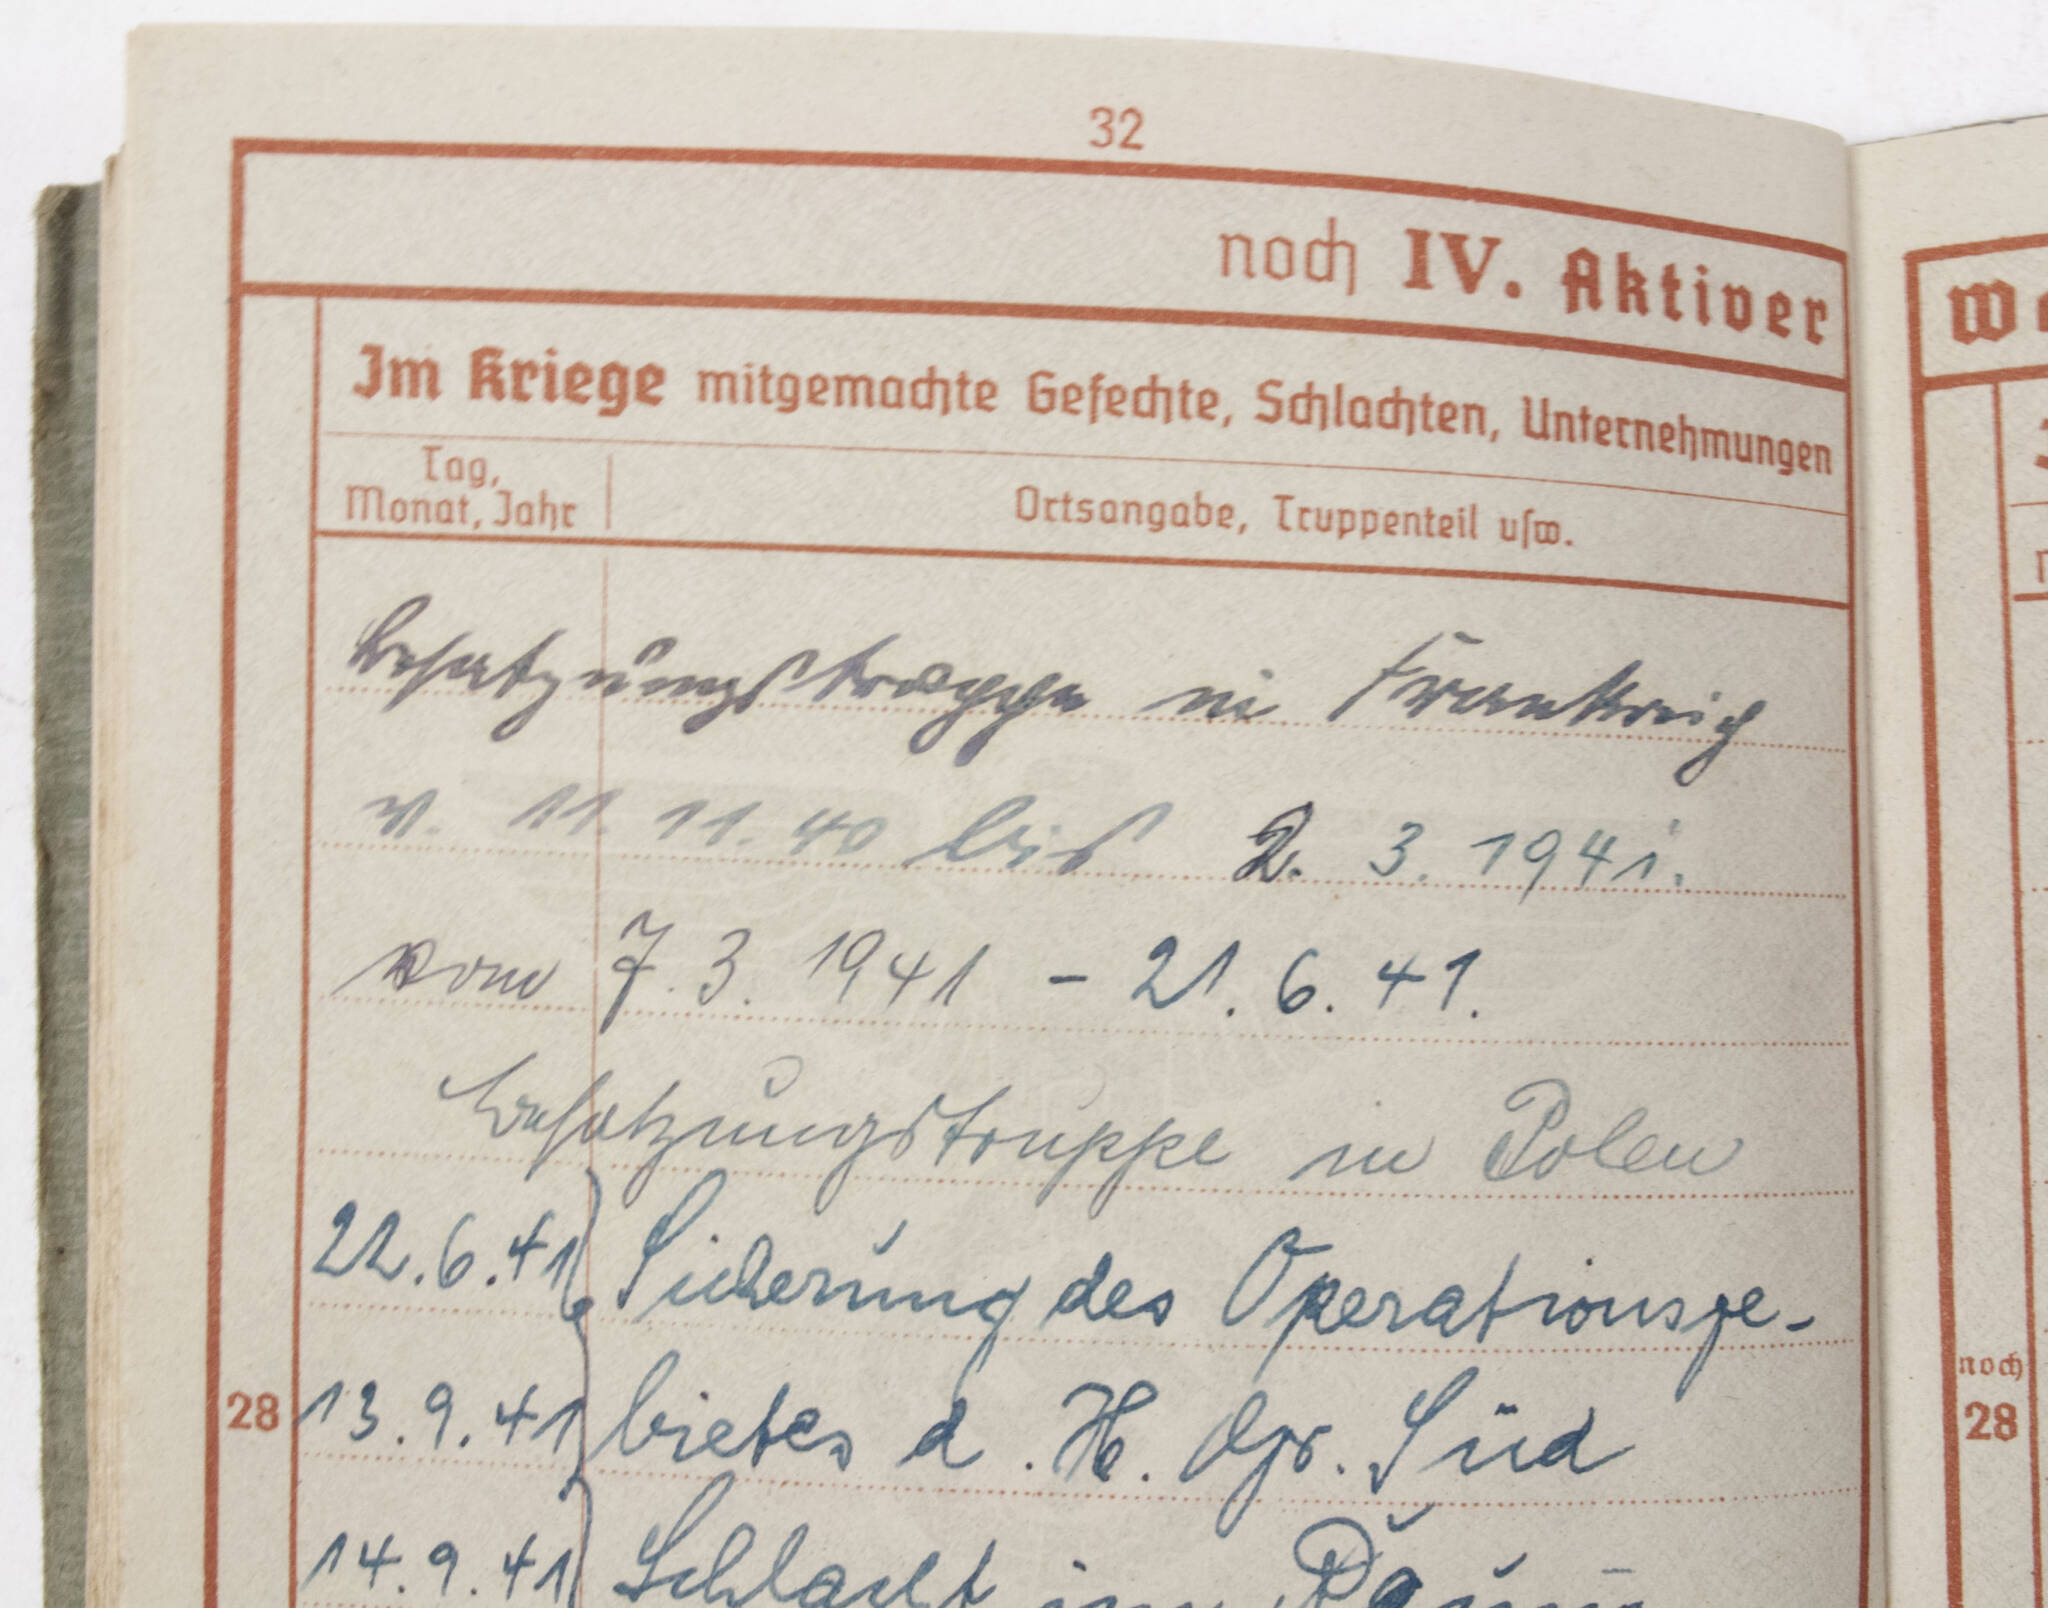 32
noch IV. Aktiver
Im Kriege mitgemachte Gefechte, Schlachten, Unternehmungen
Tag,
Monat, Jahr
Ortsangabe, Truppenteil usw.
Besatzungstruppe in Frankreich
v. 11. 11. 40 bis 2. 3. 1941.
vom 7. 3. 1941 - 21. 6. 41.
Besatzungstruppe in Polen
22. 6. 41 Sicherung des Operationsge-
28 13. 9. 41 bietes d. H. Gr. Süd
14. 9. 41 Schlacht im Raum
noch
28